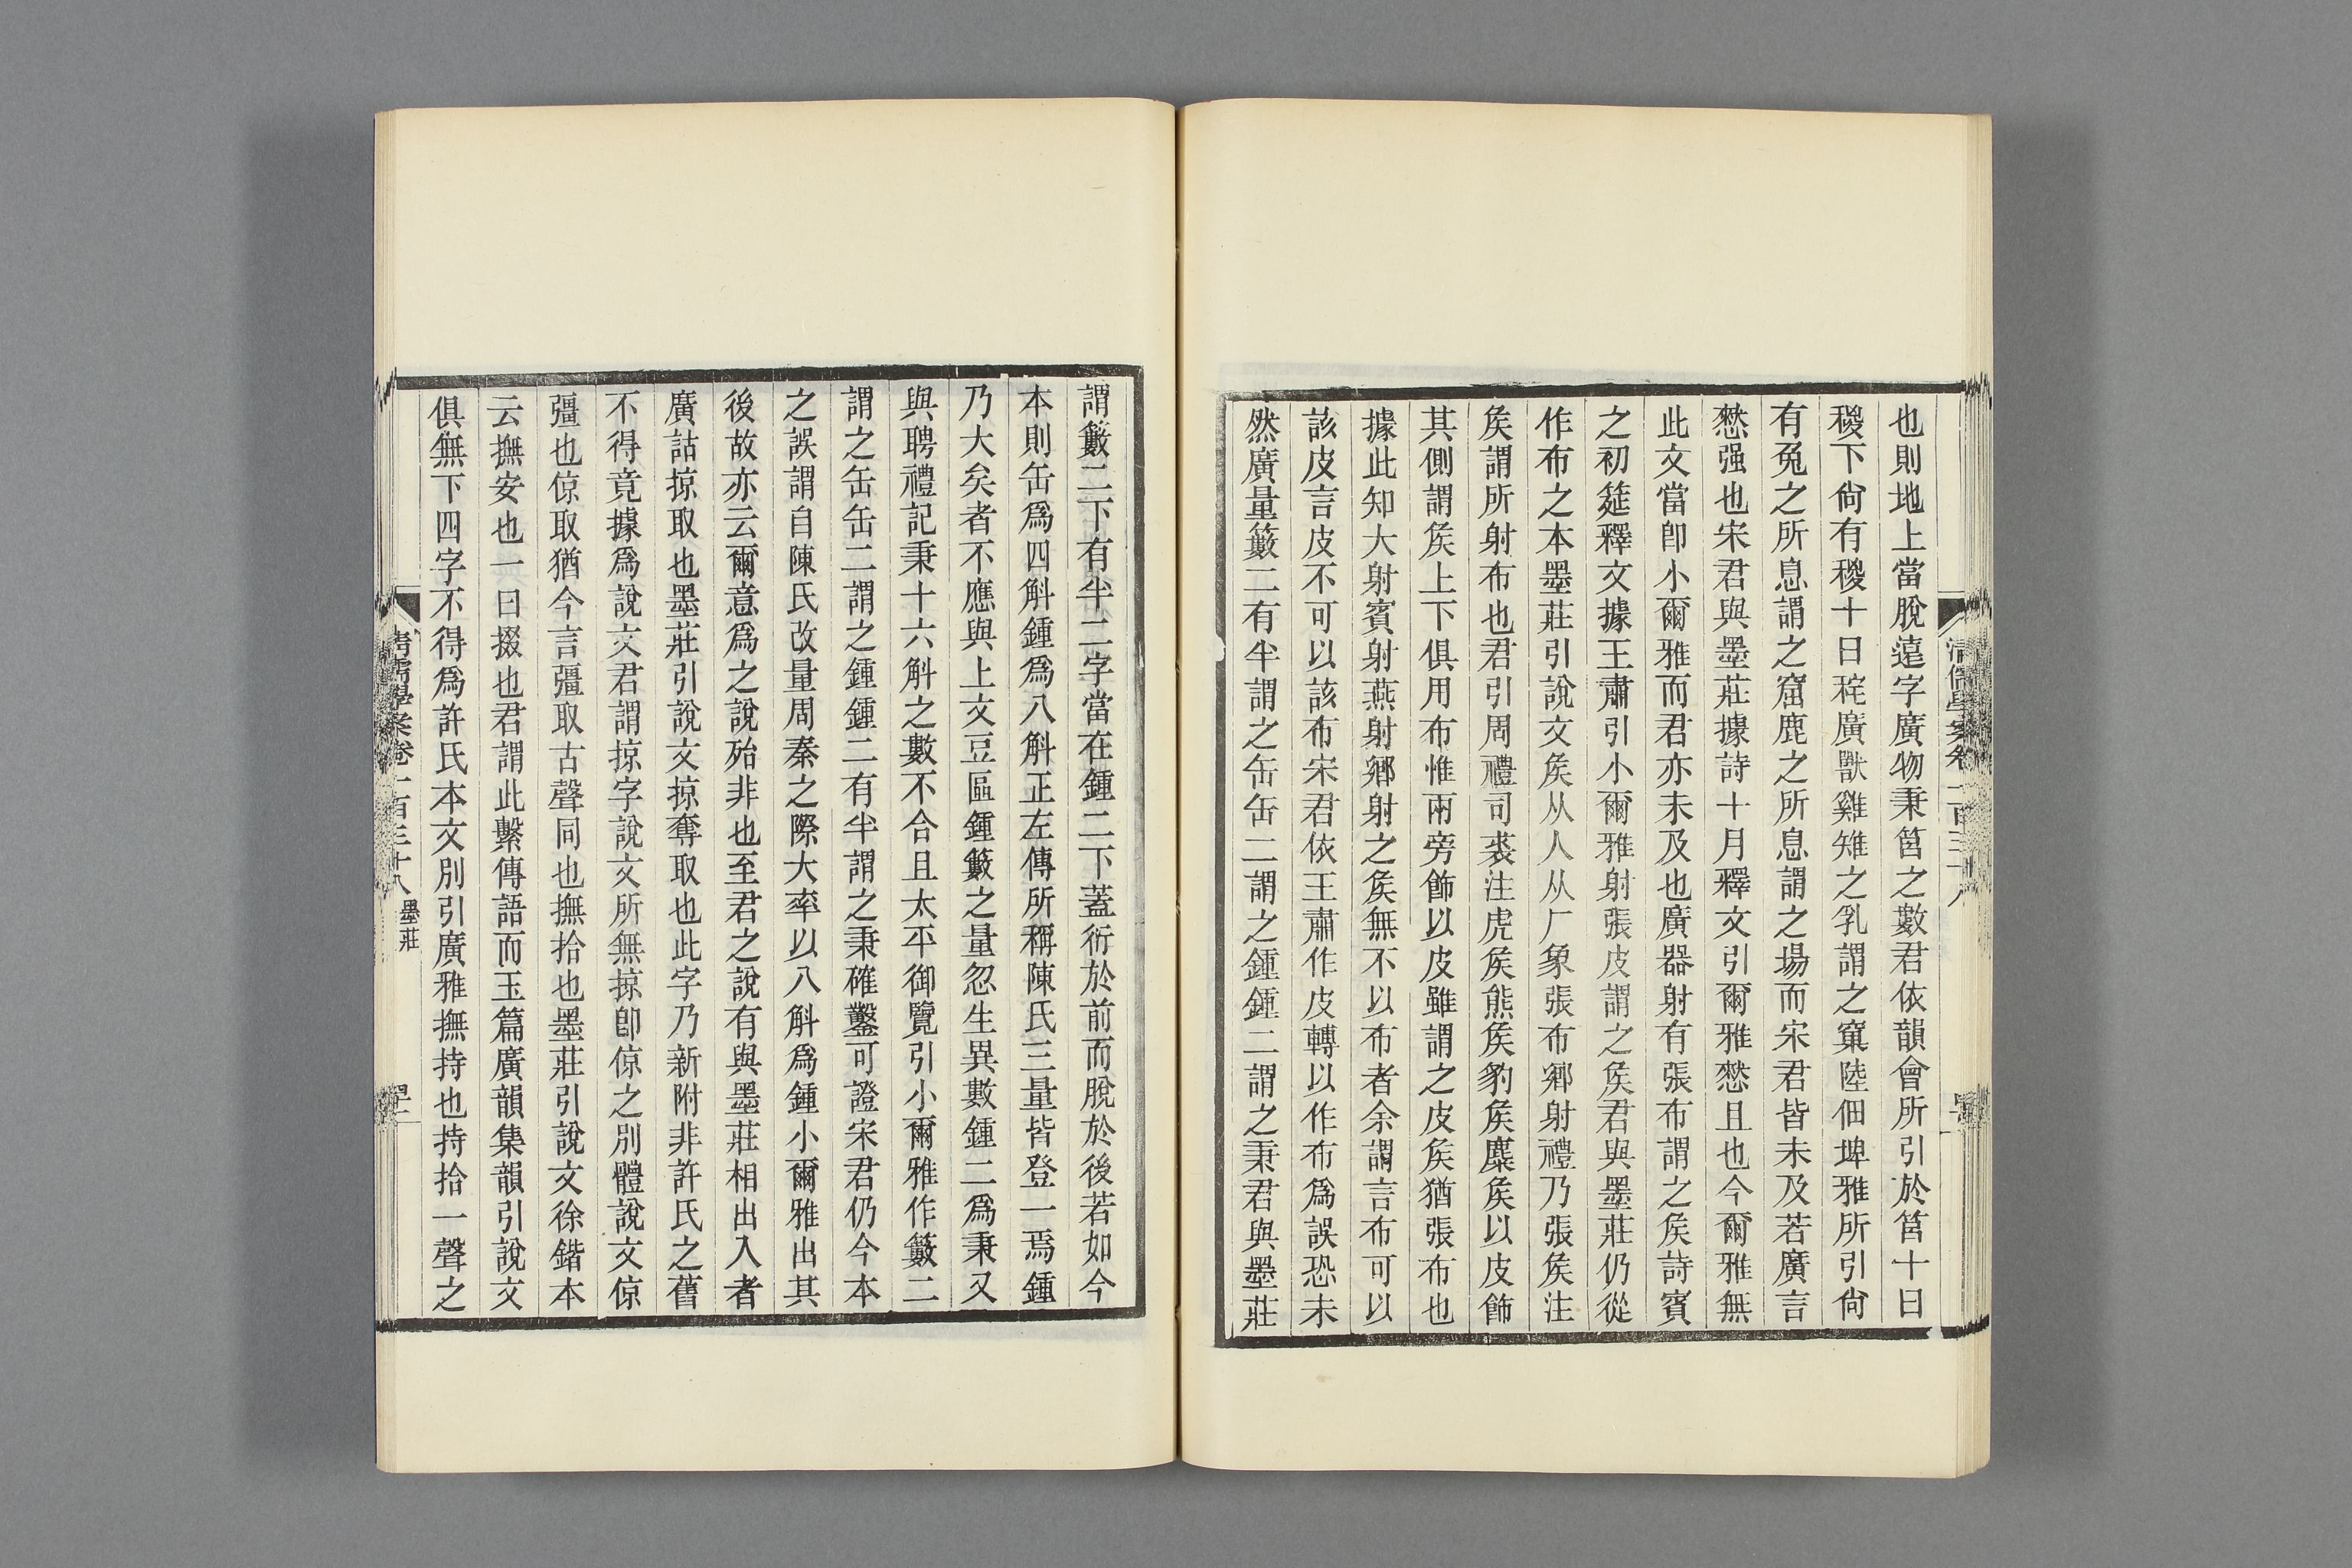 也則地上當脫薳字廣物秉筥之數君依韻會所引於筥十曰
稯下尙有稯十曰秅廣獸雞雉之乳謂之窠陸佃埤雅所引尙
有兔之所息謂之窟鹿之所息謂之場而宋君皆未及若廣言
憖强也宋君與墨莊據詩十月釋文引爾雅憖且也今爾雅無
此文當卽小爾雅而君亦未及也廣器射有張布謂之矦詩賓
之初筵釋文據王肅引小爾雅射張皮謂之矦君與墨莊仍從
作布之本墨莊引說文矦从人从厂象張布鄉射禮乃張矦注
矦謂所射布也君引周禮司裘注虎矦熊矦豹矦麋矦以皮飾
其側謂矦上下俱用布惟兩旁飾以皮雖謂之皮矦猶張布也
據此知大射賓射燕射鄉射之矦無不以布者余謂言布可以
該皮言皮不可以該布宋君依王肅作皮轉以作布爲誤恐未
然廣量籔二有半謂之缶缶二謂之鍾鍾二謂之秉君與墨莊
謂籔二下有半二字當在鍾二下蓋衍於前而脫於後若如今
本則缶爲四斛鍾爲八斛正左傳所稱陳氏三量皆登一焉鍾
乃大矣者不應與上文豆區鍾籔之量忽生異數鍾二爲秉又
與聘禮記秉十六斛之數不合且太平御覽引小爾雅作籔二
謂之缶缶二謂之鍾鍾二有半謂之秉確鑿可證宋君仍今本
之誤謂自陳氏改量周秦之際大率以八斛爲鍾小爾雅出其
後故亦云爾意爲之說殆非也至君之說有與墨莊相出入者
廣詁掠取也墨莊引說文掠奪取也此字乃新附非許氏之舊
不得竟據爲說文君謂掠字說文所無掠卽倞之別體說文倞
彊也倞取猶今言彊取古聲同也撫拾也墨莊引說文徐鍇本
云撫安也一曰掇也君謂此繫傳語而玉篇廣韻集韻引說文
俱無下四字不得爲許氏本文別引廣雅撫持也持拾一聲之
清儒學案卷一百三十八 墨莊